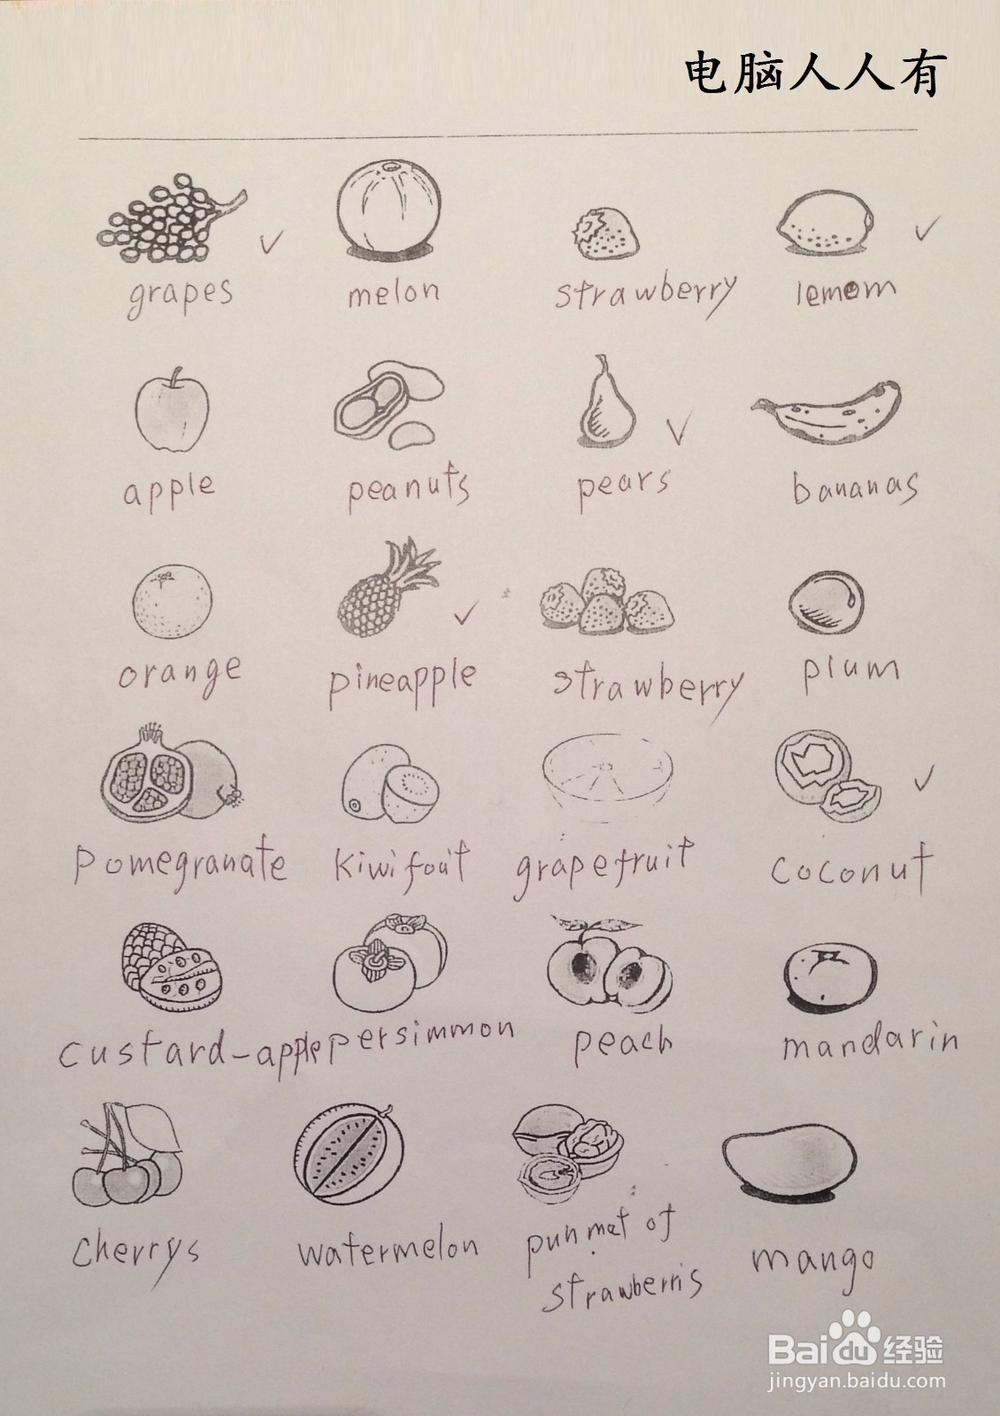 电脑人人有
grapes melon strawberry lemom
apple peanuts pears bananas
orange pineapple strawberry plum
Pomegranate kiwi fouit grapefruit coconut
custard-apple persimmon peach mandarin
cherrys watermelon punmet of mango
strawberris
Baidu经验
jingyan.baidu.com